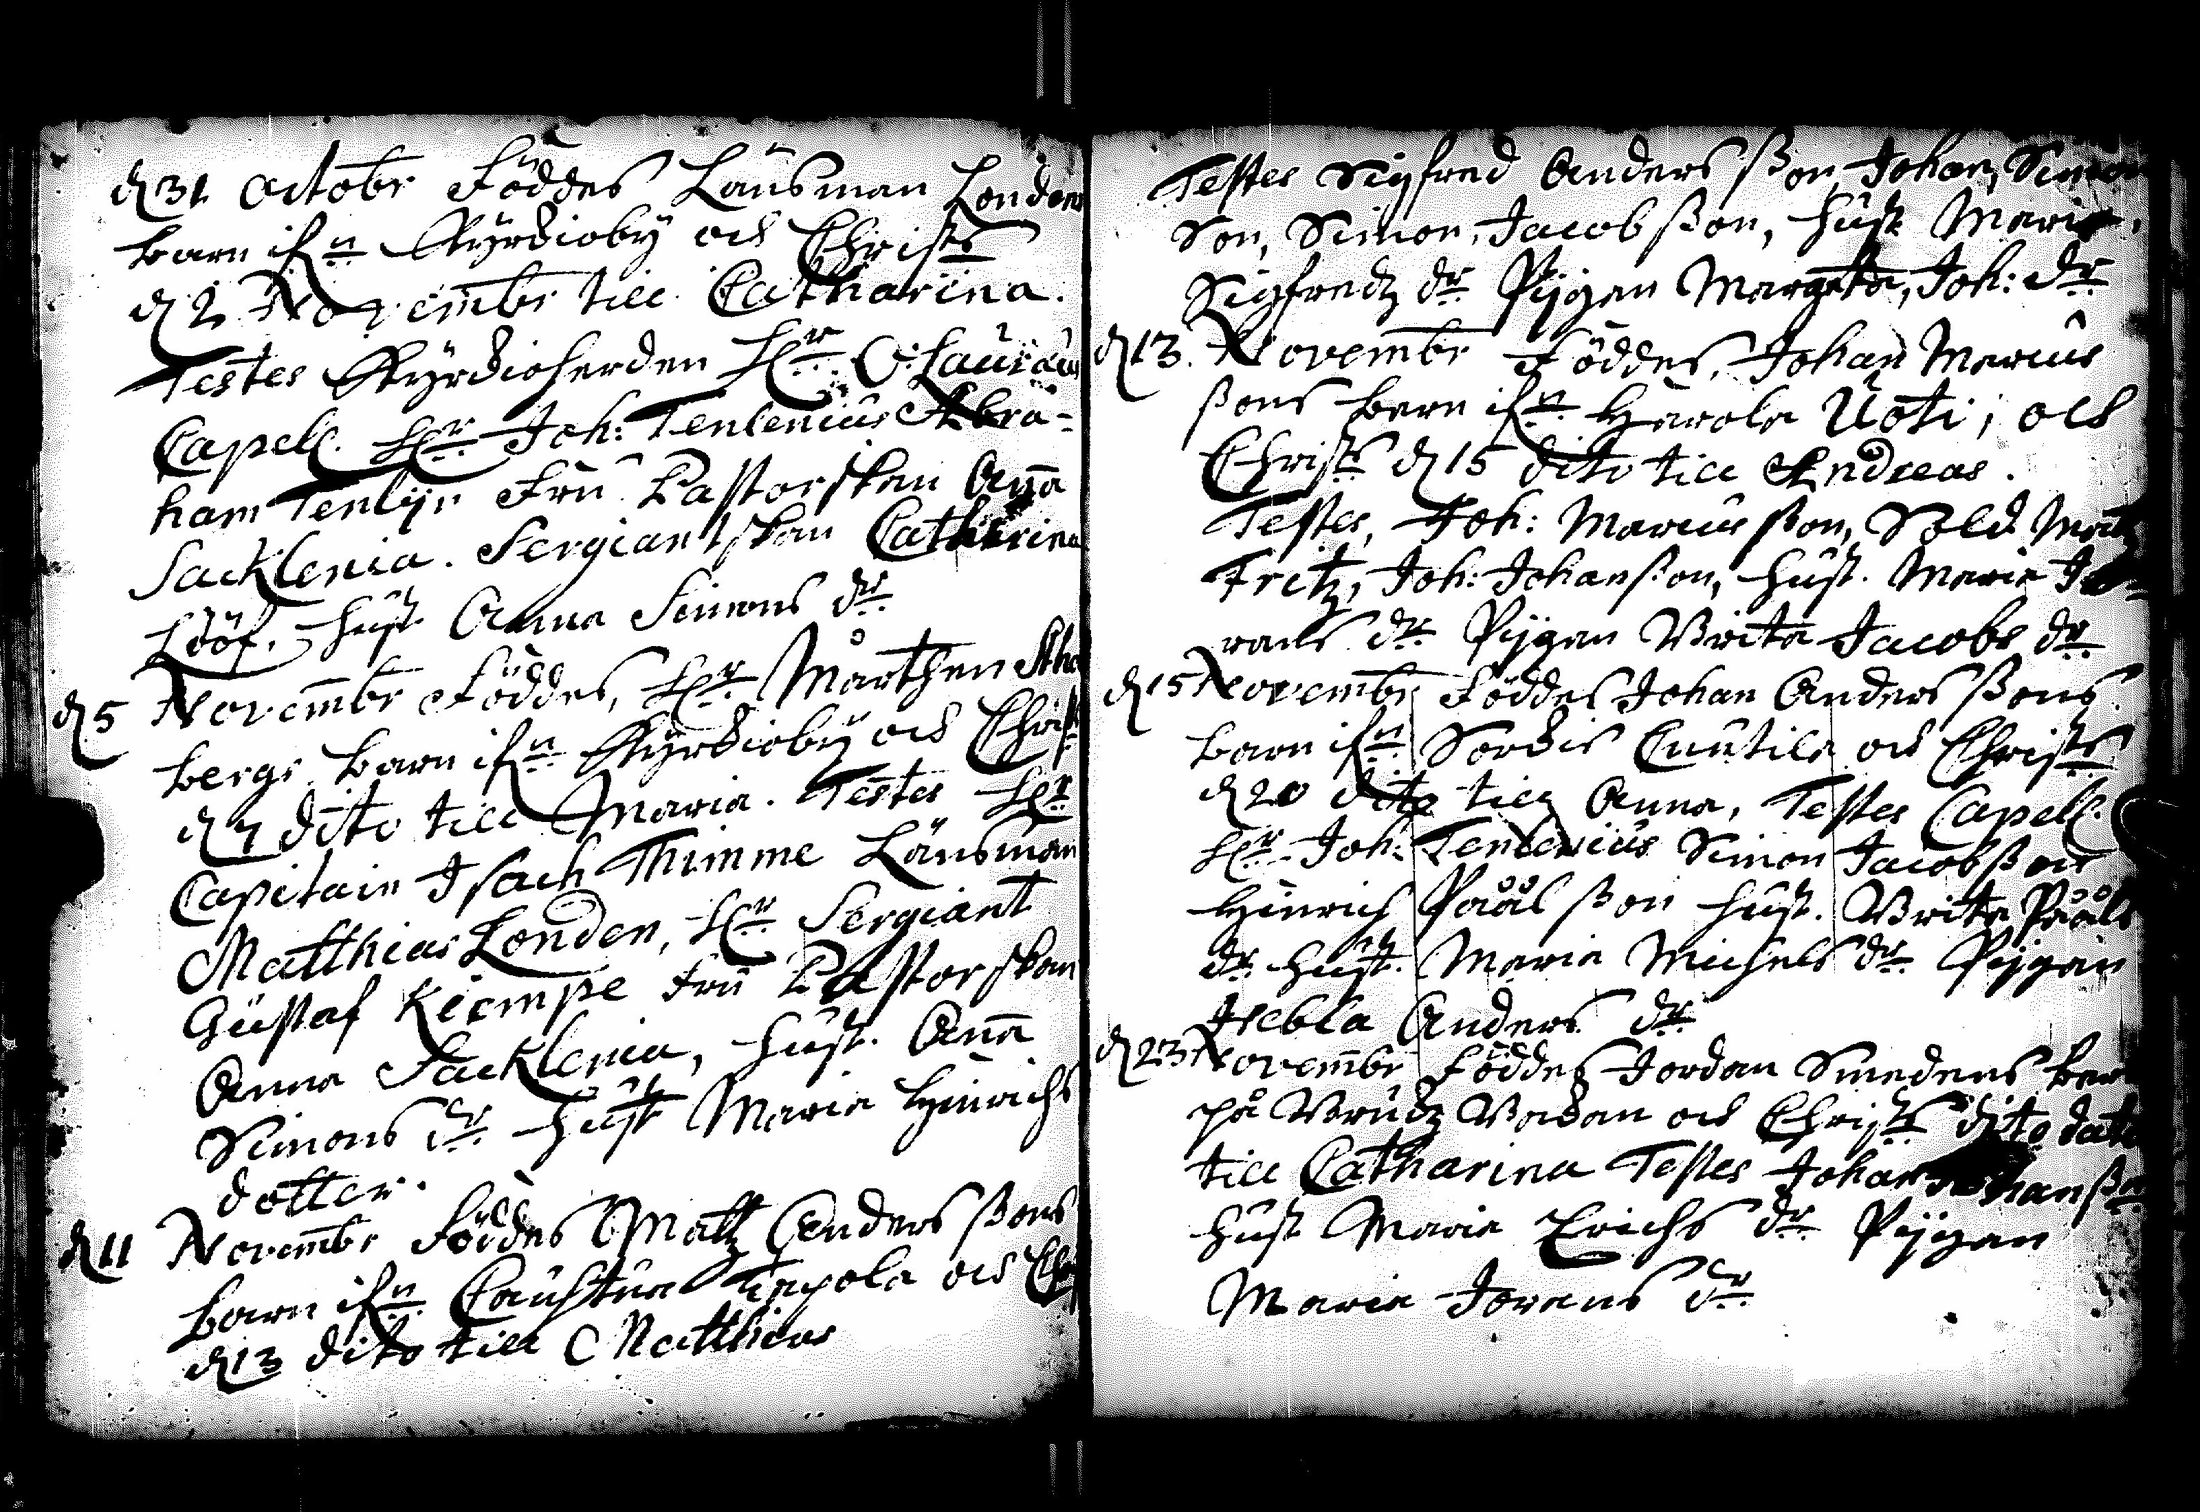 d 31 Octobr Föddes Länsman Londens
barn ifrn Kyrckioby och Christs
d 2 Novembr till Catharina.
Testes Kyrckioherden Hr O: Lauræus
Capell. Hr Joh: Tenlenius Abra-
ham Tenlyn Fru Pastorskan Aña
Sacklenia. Sergiantskan Catharina
Lööf. hust Anna Simons dr
d 5 Novembr Föddes, Hr Mårthen
bergs barn ifrn Kyrckioby och Christ
d 7 dito till Maria. Testes Hr
Capitain Isach Thimme Länsman
Matthias Londen, Hr Sergiant
Gustaf Kiempe Fru Pastorskan
Anna Sacklenia, hust. Aña
Simons dr hust Maria Hinrichs
dotter.
d 11 Novembr Föddes Matz Anders ßons
barn ifrn och Chr
d 13 dito till Matthias
Testes Sigfred Anders ßon, Johan Simon
Son, Simon Jacobßon, hust Maria
Sigfredz dr Pijgan Margeta, Joh: dr
d 13. Novembr Föddes, Johan Marcus
ßons barn ifrn Harola Uoti; och
Christs d 15 dito till Andreas.
Testes, Joh: Marcus ßon, Sold. Matz
Fritz, Joh: Johanßon, hust. Maria
rans dr Pijgan Brita Jacobs dr
d 15 Novembr Föddes Johan Anders ßons
barn ifrn och Christs
d 20 dito till Anna, Testes Capell.
Hr Joh: Tenlenius Simon Jacobßon
Hinrich Påål ßon hust. Brita Pååls
dr hust. Maria Michels dr Pijgan
Webla Anders dr
d 23 Novembr Föddes Jordan Smedens barn
på Bruuz Backan och Christs dito dato
till Catharina Testes Johan Johanßon
hust Maria Erichs dr Pijgan
Maria Jorans dr